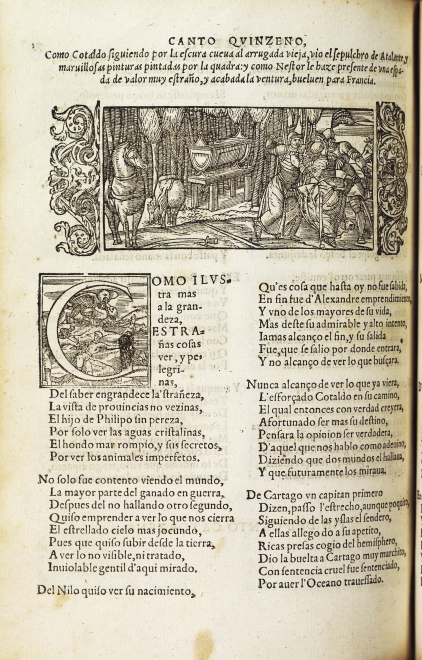 CANTO QVINZENO,
Como Cotaldo siguiendo por la escura cueua al arrugada vieja, vio el sepulchro de Atalante, y
marauillosas pinturas pintadas por la quadra: y como Nestor le haze presente de vna espa-
da de valor muy estraño, y acabada la ventura, bueluen para Francia.
COMO ILVS-
tra mas
a la gran-
deza,
ESTRA-
ñas cosas
ver, y pe-
legri-
nas,
Del saber engrandece la 'strañeza,
La vista de prouincias no vezinas,
El hijo de Philipo sin pereza,
Por solo ver las aguas cristalinas,
El hondo mar rompio, y sus secretos,
Por ver los animales imperfetos.
No solo fue contento viendo el mundo,
La mayor parte del ganado en guerra,
Despues del no hallando otro segundo,
Quiso emprender a ver lo que nos cierra
El estrellado cielo mas jocundo,
Pues que quiso subir desde la tierra,
A ver lo no visible, ni tratado,
Inuiolable gentil d'aqui mirado.
Del Nilo quiso ver su nacimiento,
Qu'es cosa que hasta oy no fue sabida,
En fin fue d'Alexandre emprendimiento,
Y vno de los mayores de su vida,
Mas deste su admirable y alto intento,
Iamas alcanço el fin, y su salida
Fue, que se salio por donde entrara,
Y no alcanço de ver lo que buscara.
Nunca alcanço de ver lo que ya viera,
L'esforçado Cotaldo en su camino,
El qual entonces con verdad creyera,
Afortunado ser mas su destino,
Pensara la opinion ser verdadera,
D'aquel que nos hablo como adeuino,
Diziendo que dos mundos el hallaua,
Y que futuramente los miraua.
De Cartago vn capitan primero
Dizen, passo l'estrecho, aunque poquito,
Siguiendo de las yslas el sendero,
A ellas allego do a su apetito,
Ricas presas cogio del hemisphero,
Dio la buelta a Cartago muy marchito,
Con sentencia cruel fue sentenciado,
Por auer l'Oceano trauessado.